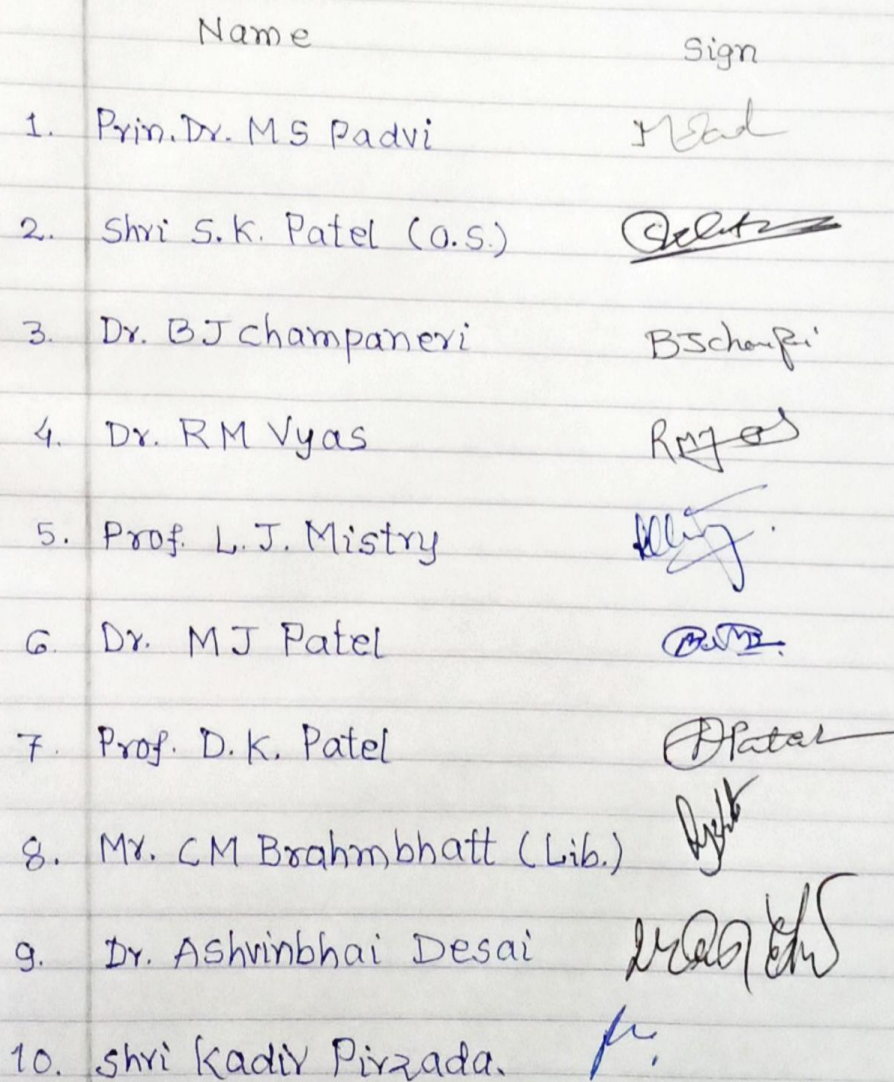 Name Sign
1. Prin. Dr. M S Padvi
2. Shri S.K. Patel (O.S.)
3. Dr. B J Champaneri
4. Dr. R M Vyas
5. Prof. L. J. Mistry
6. Dr. M J Patel
7. Prof. D. K. Patel
8. Mr. C M Brahmbhatt (Lib.)
9. Dr. Ashvinbhai Desai
10. Shri Kadir Pirzada.